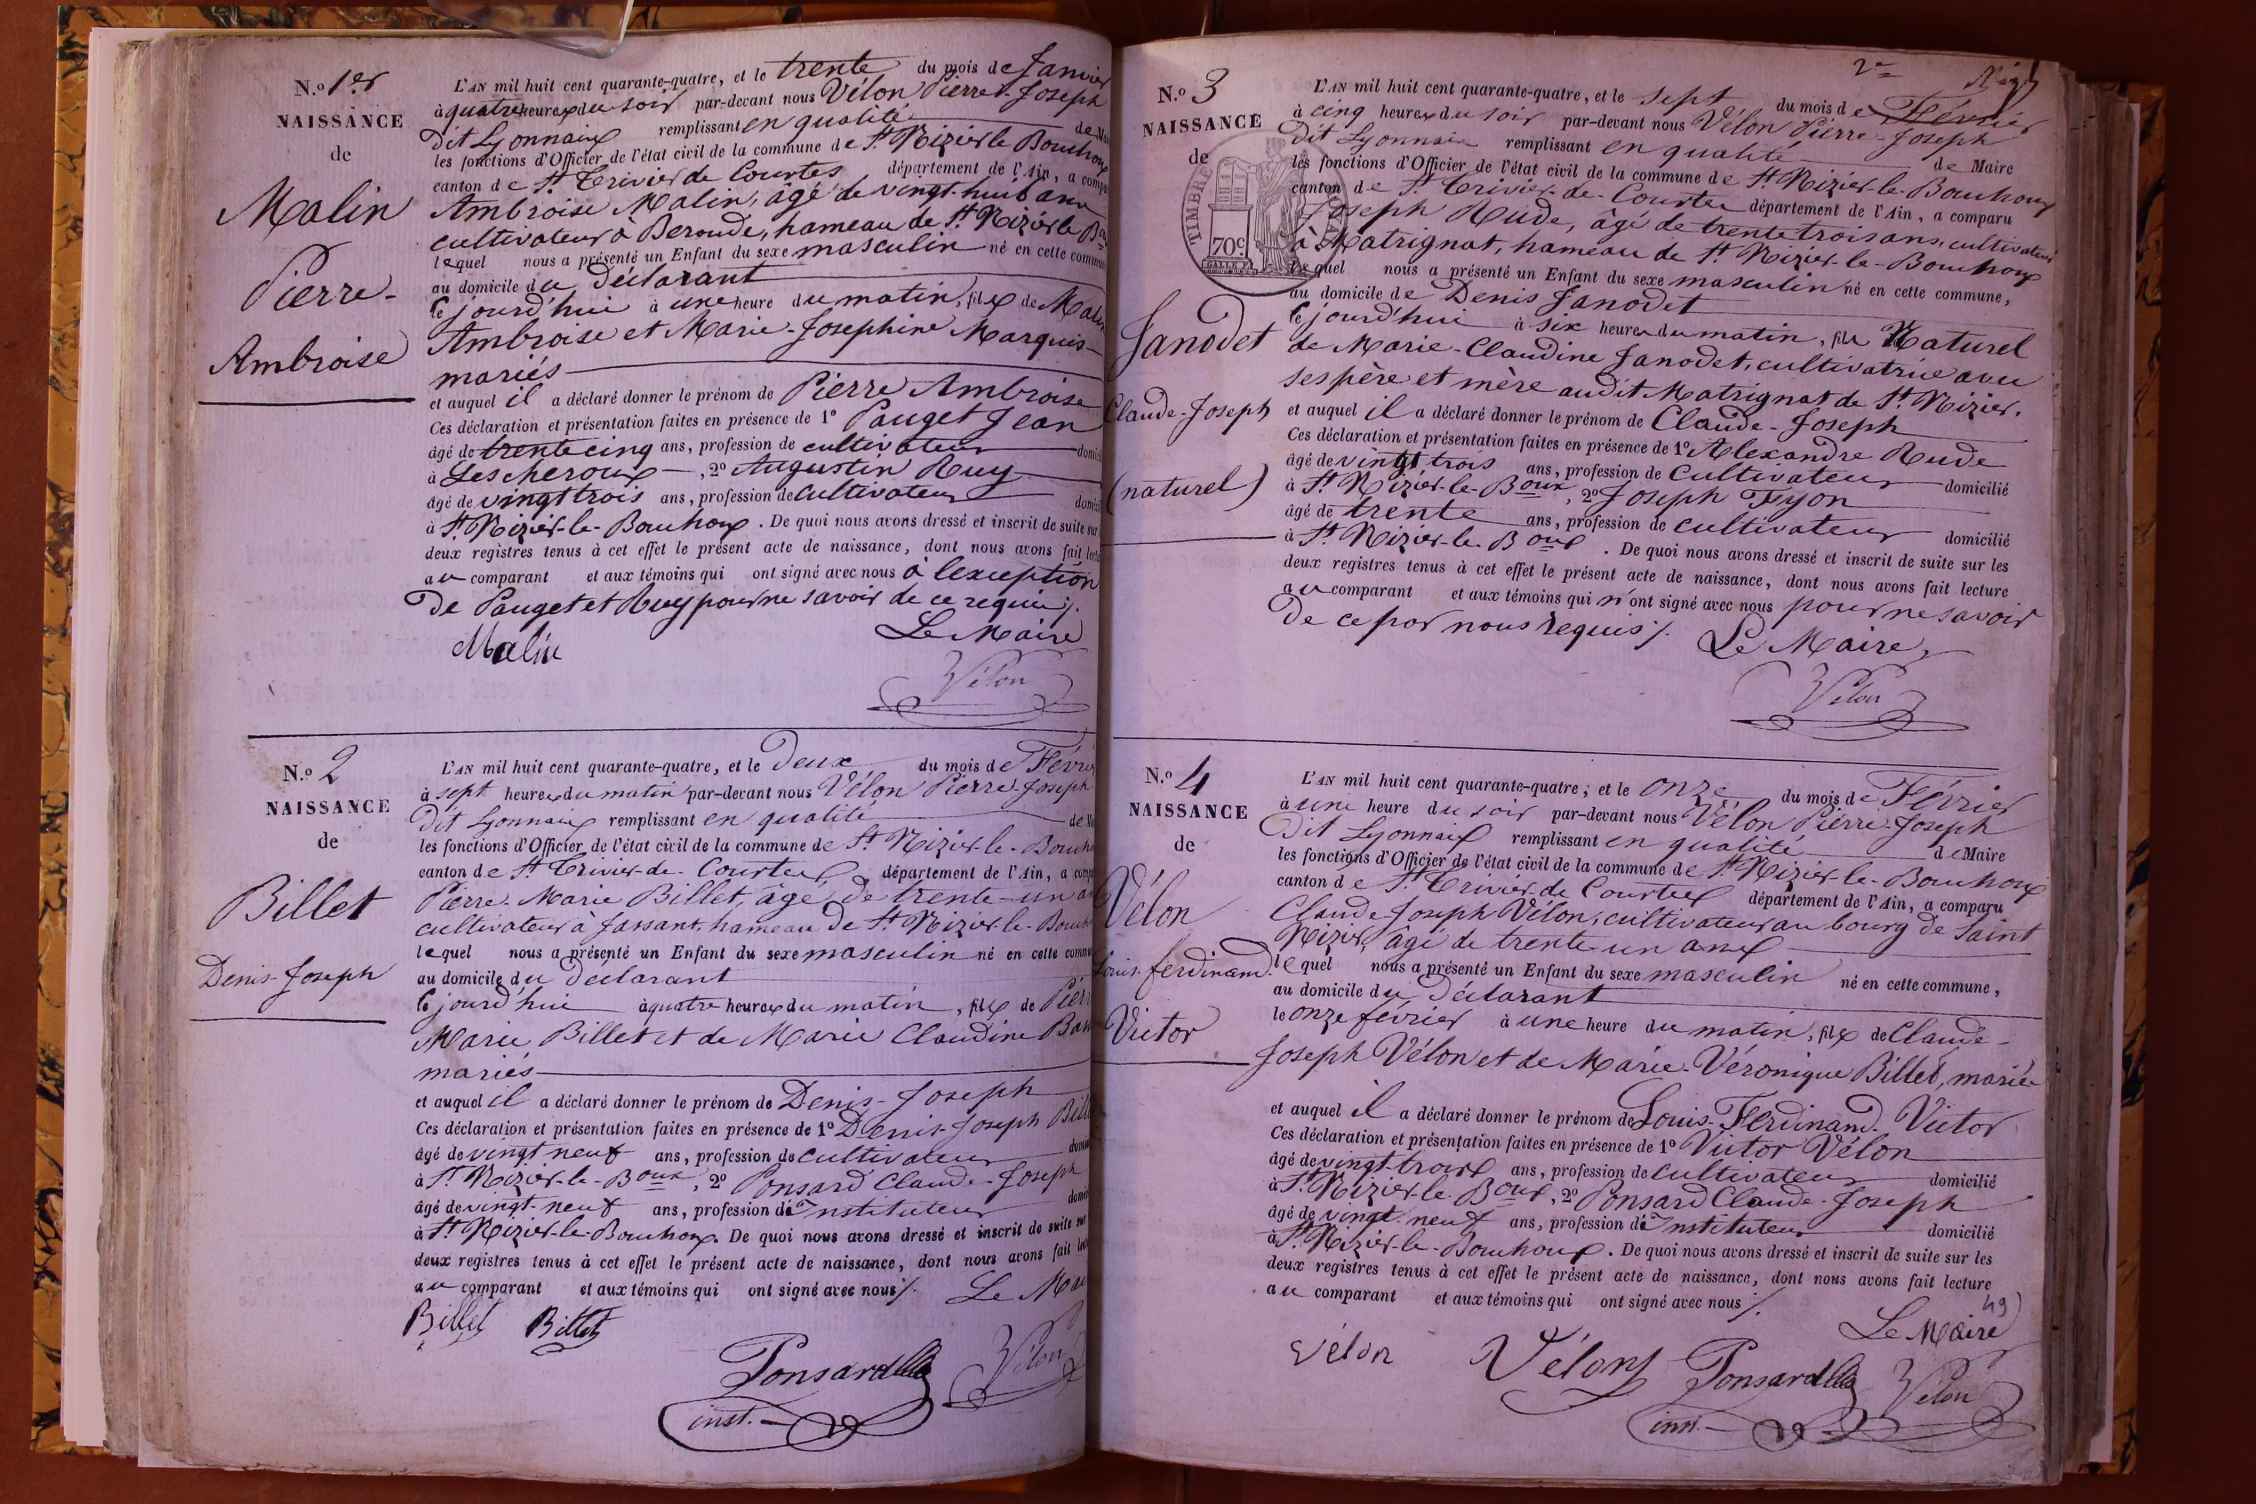 N.º 1er
NAISSANCE
de
Malin
Pierre-
Ambroise
L'AN mil huit cent quarante-quatre, et le trente du mois de Janvier
à quatre heures du soir par-devant nous Vélon Pierre-Joseph
dit Lyonnais remplissant en qualité de
les fonctions d'Officier de l'état civil de la commune de St Nizier le Bouchoux
canton de St Trivier de Courtes département de l'Ain, a
Ambroise Malin, âgé de vingt-huit ans
cultivateur à Beroude, hameau de St Nizier le
lequel nous a présenté un Enfant du sexe masculin né en cette
au domicile du Déclarant
le jourd'hui à une heure du matin, fils de
Ambroise et Marie-Josephine Marquis-
mariés
et auquel il a déclaré donner le prénom de Pierre Ambroise
Ces déclaration et présentation faites en présence de 1º Pauget Jean
âgé de trente cinq ans, profession de cultivateur
à Lescheroux, 2º Augustin Ruy
âgé de vingt trois ans, profession de cultivateur
à St Nizier-le-Bouchoux. De quoi nous avons dressé et inscrit de suite sur
deux registres tenus à cet effet le présent acte de naissance, dont nous avons fait
au comparant et aux témoins qui ont signé avec nous à l'exception
de Pauget et Ruy pour ne savoir de ce requis /.
Malin Le Maire
Vélon
N.º 2
NAISSANCE
de
Billet
Denis-Joseph
L'AN mil huit cent quarante-quatre, et le deux du mois de
à sept heures du matin par-devant nous Vélon Pierre-Joseph
dit Lyonnais remplissant en qualité de
les fonctions d'Officier de l'état civil de la commune de St Nizier-le-
canton de St Trivier-de-Courtes, département de l'Ain, a
Pierre-Marie Billet, âgé de trente-un
cultivateur à Jassant, hameau de St Nizier-le-
lequel nous a présenté un Enfant du sexe masculin né en cette
au domicile du déclarant
le jourd'hui à quatre heures du matin, fils de
Marie Billet et de Marie Claudine
mariés
et auquel il a déclaré donner le prénom de Denis-Joseph
Ces déclaration et présentation faites en présence de 1º Denis-Joseph
âgé de vingt neuf ans, profession de cultivateur
à St Nizier-le-Boux, 2º Ponsard Claude-Joseph
âgé de vingt-neuf ans, profession d'instituteur
à St Nizier-le-Bouchoux. De quoi nous avons dressé et inscrit de suite sur
deux registres tenus à cet effet le présent acte de naissance, dont nous avons fait
au comparant et aux témoins qui ont signé avec nous /. Le
Billet Billet
Ponsard
inst.
Vélon
2e
N.º 3
NAISSANCE
de
TIMBRE
70c
Janodet
Claude-Joseph
(naturel)
L'AN mil huit cent quarante-quatre, et le sept du mois de Février
à cinq heures du soir par-devant nous Vélon Pierre-Joseph
dit Lyonnais remplissant en qualité de Maire
les fonctions d'Officier de l'état civil de la commune de St Nizier-le-Bouchoux
canton de St Trivier-de-Courtes département de l'Ain, a comparu
Joseph Rude, âgé de trente trois ans, cultivateur
à Matrignat, hameau de St Nizier-le-Bouchoux
lequel nous a présenté un Enfant du sexe masculin né en cette commune,
au domicile de Denis Janodet
le jourd'hui à six heures du matin, fils Naturel
de Marie-Claudine Janodet, cultivatrice avec
ses père et mère audit Matrignat de St Nizier.
et auquel il a déclaré donner le prénom de Claude-Joseph
Ces déclaration et présentation faites en présence de 1º Alexandre Rude
âgé de vingt trois ans, profession de cultivateur domicilié
à St Nizier-le-Boux, 2º Joseph Fyon
âgé de trente ans, profession de cultivateur domicilié
à St Nizier-le-Boux. De quoi nous avons dressé et inscrit de suite sur les
deux registres tenus à cet effet le présent acte de naissance, dont nous avons fait lecture
au comparant et aux témoins qui n'ont signé avec nous pour ne savoir
de ce par nous requis /. Le Maire,
Vélon
N.º 4
NAISSANCE
de
Vélon
Louis-ferdinand-
Victor
L'AN mil huit cent quarante-quatre; et le onze du mois de Février
à une heure du soir par-devant nous Vélon Pierre-Joseph
dit Lyonnais remplissant en qualité de Maire
les fonctions d'Officier de l'état civil de la commune de St Nizier-le-Bouchoux
canton de St Trivier-de Courtes département de l'Ain, a comparu
Claude Joseph Vélon, cultivateur au bourg de Saint
Nizier, âgé de trente-un ans
lequel nous a présenté un Enfant du sexe masculin né en cette commune,
au domicile du déclarant
le onze février à une heure du matin, fils de Claude-
Joseph Vélon et de Marie-Véronique Billet, mariés
et auquel il a déclaré donner le prénom de Louis-Ferdinand-Victor
Ces déclaration et présentation faites en présence de 1º Victor Vélon
âgé de vingt-trois ans, profession de cultivateur domicilié
à St Nizier-le-Boux, 2º Ponsard Claude-Joseph
âgé de vingt neuf ans, profession d'instituteur domicilié
à St Nizier-le-Bouchoux. De quoi nous avons dressé et inscrit de suite sur les
deux registres tenus à cet effet le présent acte de naissance, dont nous avons fait lecture
au comparant et aux témoins qui ont signé avec nous /.
49
Le Maire
Vélon Vélon Ponsard Vélon
inst.